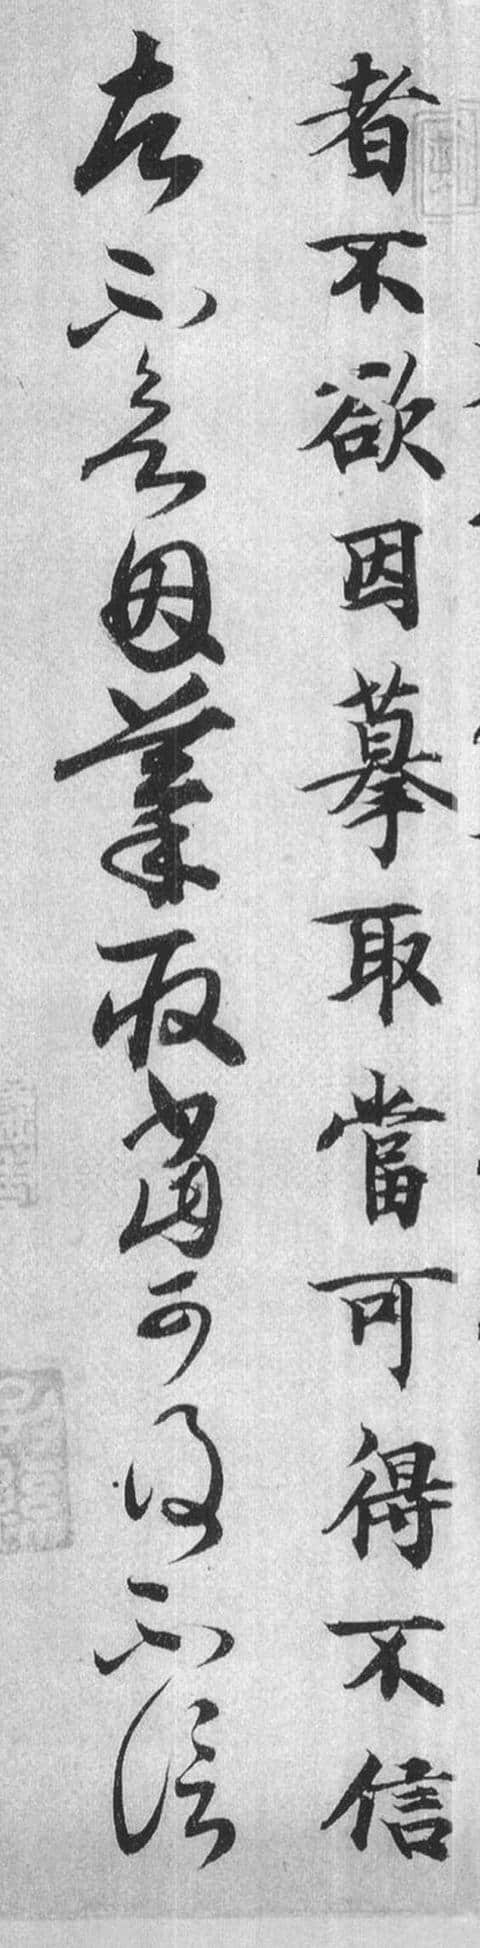 者不欲因摹取當可得不信
者不欲因摹取當可得不信